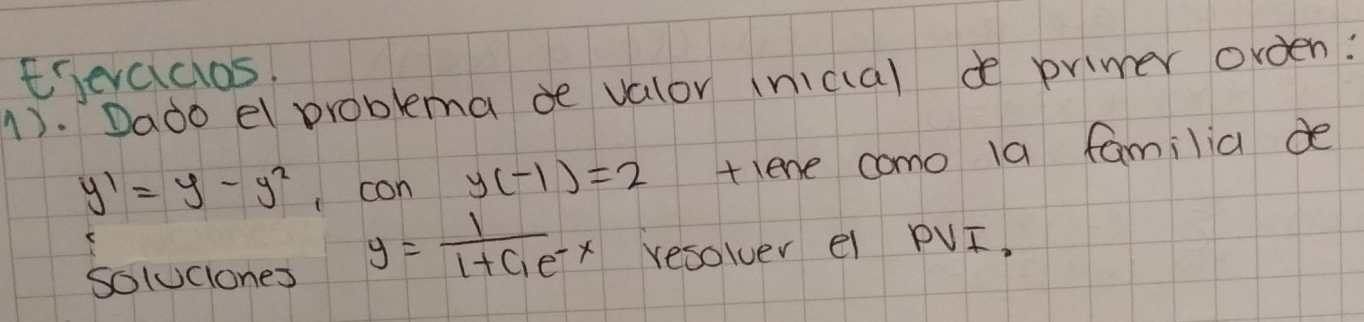 Ejercicios.
1). Dado el problema de valor inicial de primer orden:
y' = y - y², con y(-1)=2 tiene como la familia de
soluciones y = 1/(1+C₁e^-x) resolver el PVI.